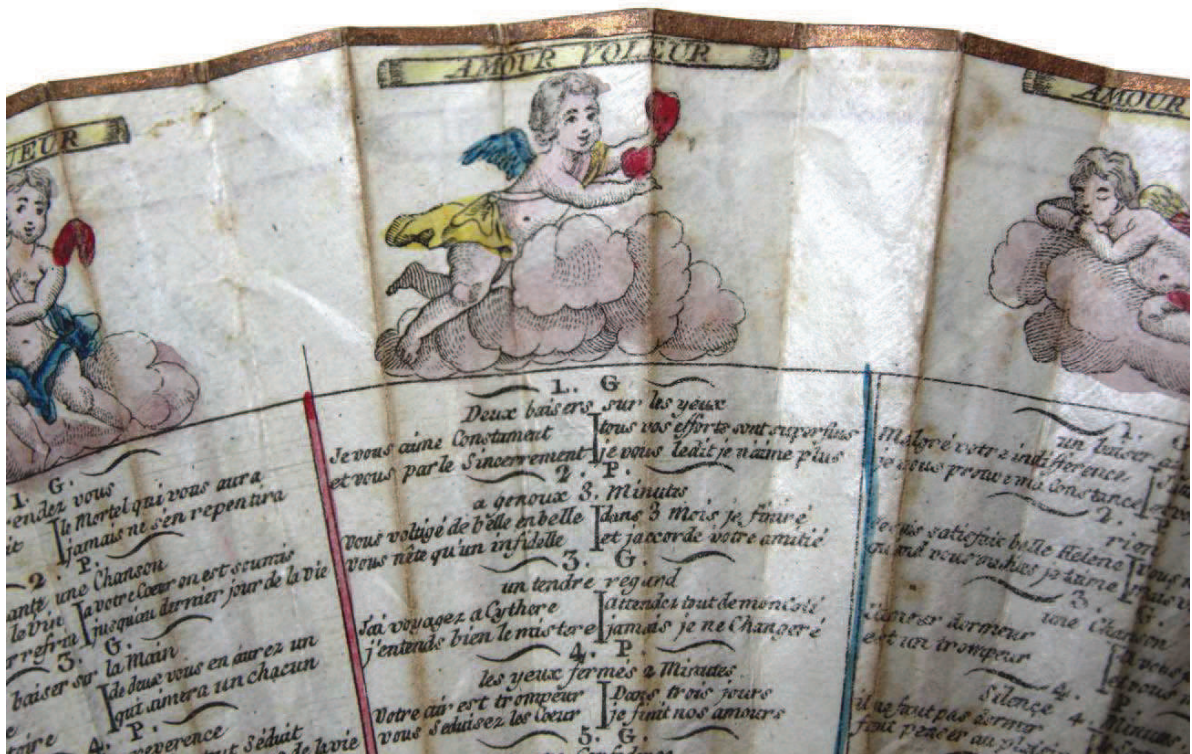 UEUR
AMOUR VOLEUR
AMOUR
1. G.
rendez vous
le Mortel qui vous aura
jamais ne s'en repentira
2. P.
chante une Chanson
a votre Coeur on est soumis
le vin
jusqu'au dernier jour de la vie
refrai
3. G.
baiser sur la Main
de deux vous en aurez un
qui aimera un chacun
4. P.
reverence
tout Séduit
de la vie
1. G
Deux baisers sur les yeux
Je vous aime Constament
et vous parle Sincerrement
tous vos efforts sont superflus
je vous ledit je n'aime plus
2. P.
a genoux 3. Minutes
vous voltigé de belle en belle
vous nête qu'un infidelle
dans 3 mois je finiré
et jaccorde votre amitié
3. G.
un tendre regard
J'ai voyagez a Cythere
j'entends bien le mistere
attendez tout de mon Coté
jamais je ne Changeré
4. P.
les yeux fermés 2 Minutes
Votre air est trompeur
vous Seduisez les Coeur
Dans trois jours
je finit nos amours
5. G.
Confidence
1. G
un baiser
Malgré votre indifference
je vous prouve ma Constance
2. P
rien
Je suis satisfait belle Helene
3. G
une Chanson
l'amour dormeur
est un trompeur
4. P
Silençe 4. Minutes
il ne faut pas dormir
faut penser au